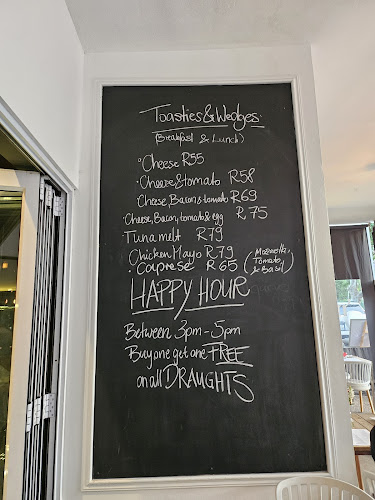 Toasties & Wedges.
(Breakfast & Lunch)
Cheese R55
Cheese & tomato R58
Cheese Bacon & tomato R69
Cheese, Bacon, tomato & egg R 75
Tuna melt R79
Chicken Mayo R79
Caprese R65 (Mozzarella, Tomato, & Basil)
HAPPY HOUR
Between 3pm - 5pm
Buy one get one FREE
on all DRAUGHTS